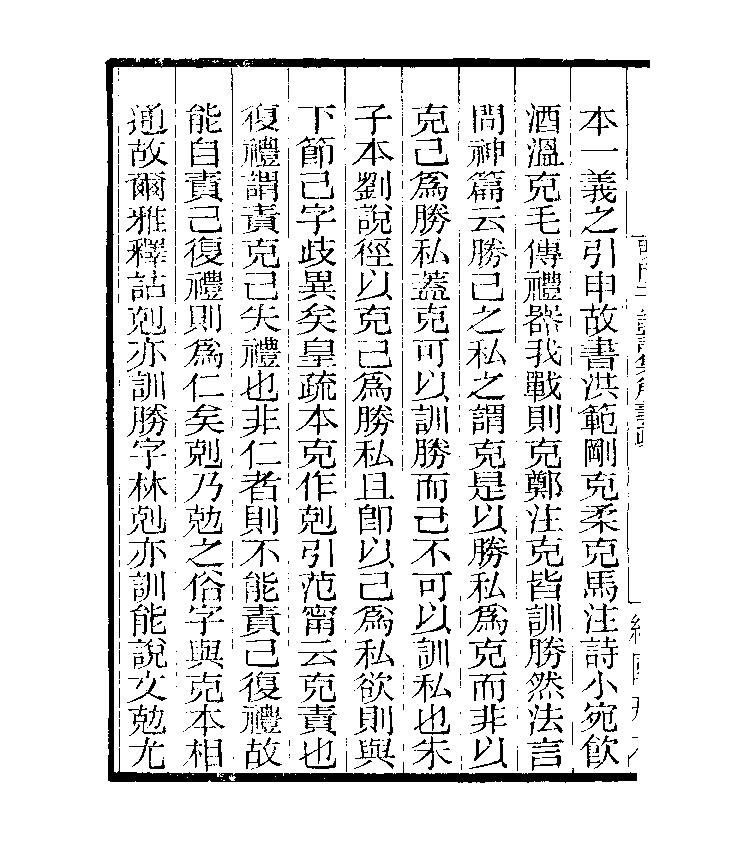 本一義之引申故書洪範剛克柔克馬注詩小宛飲
酒溫克毛傳禮器我戰則克鄭注克皆訓勝然法言
問神篇云勝己之私之謂克是以勝私爲克而非以
克己爲勝私蓋克可以訓勝而己不可以訓私也朱
子本劉說徑以克己爲勝私且卽以己爲私欲則與
下節己字歧異矣皇疏本克作剋引范甯云克責也
復禮謂責克己失禮也非仁者則不能責己復禮故
能自責己復禮則爲仁矣剋乃勊之俗字與克本相
通故爾雅釋詁剋亦訓勝字林剋亦訓能說文勊尤